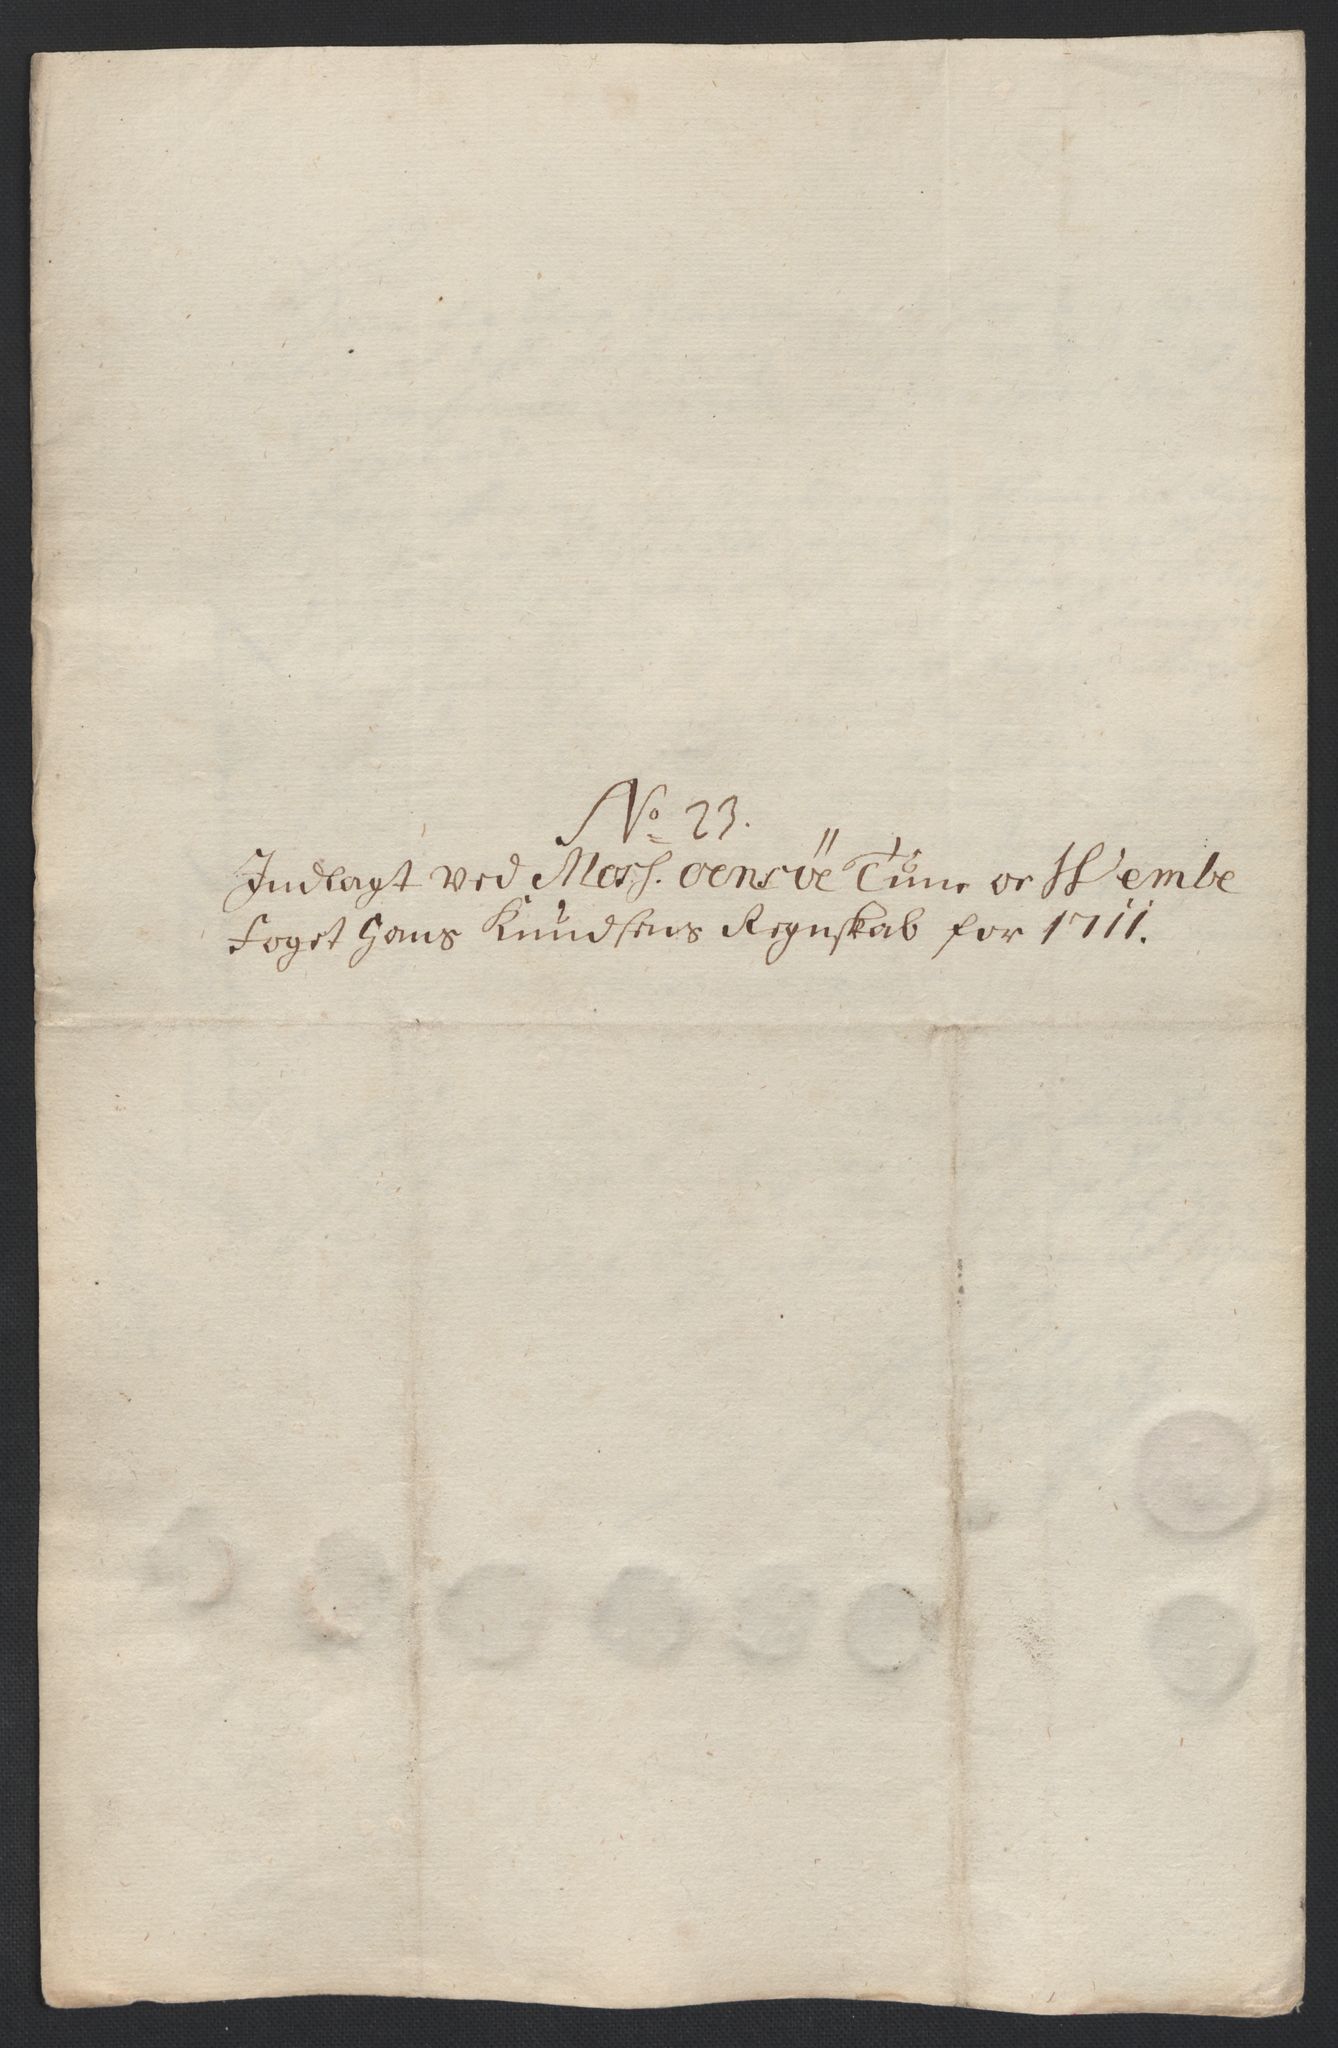 No 23.
Indlagt ved Moss. oensöe Tune oc Wembe
Foget Hans Knudsens Regnskab for 1711.